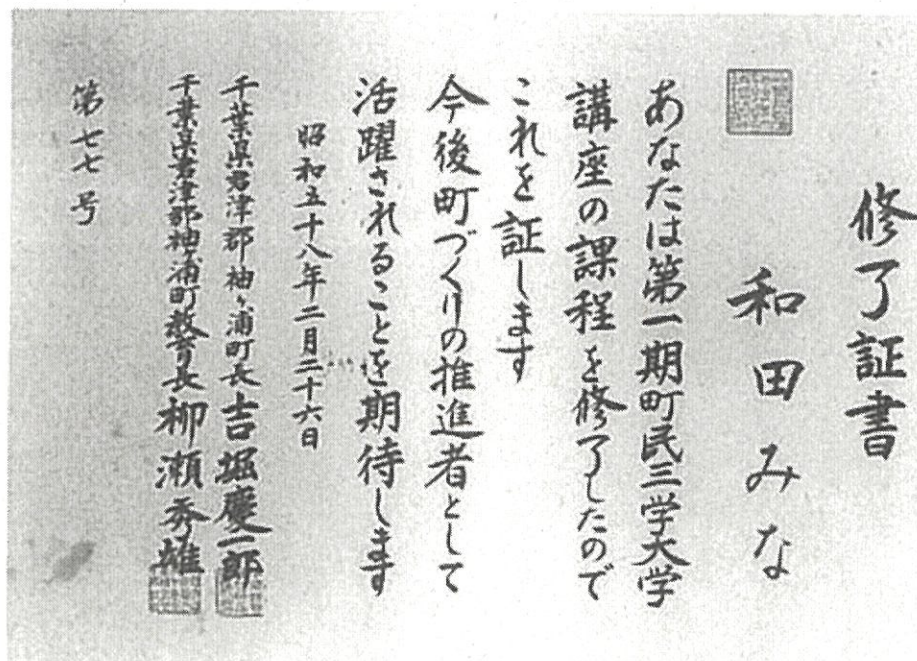 修了証書
和田みな
あなたは第一期町民三学大学
講座の課程を修了したので
これを証します
今後町づくりの推進者として
活躍されることを期待します
昭和五十八年二月二十六日
千葉県君津郡袖ヶ浦町長 吉堀慶一郎
千葉県君津郡袖ヶ浦町教育長 柳瀬秀雄
第七七号